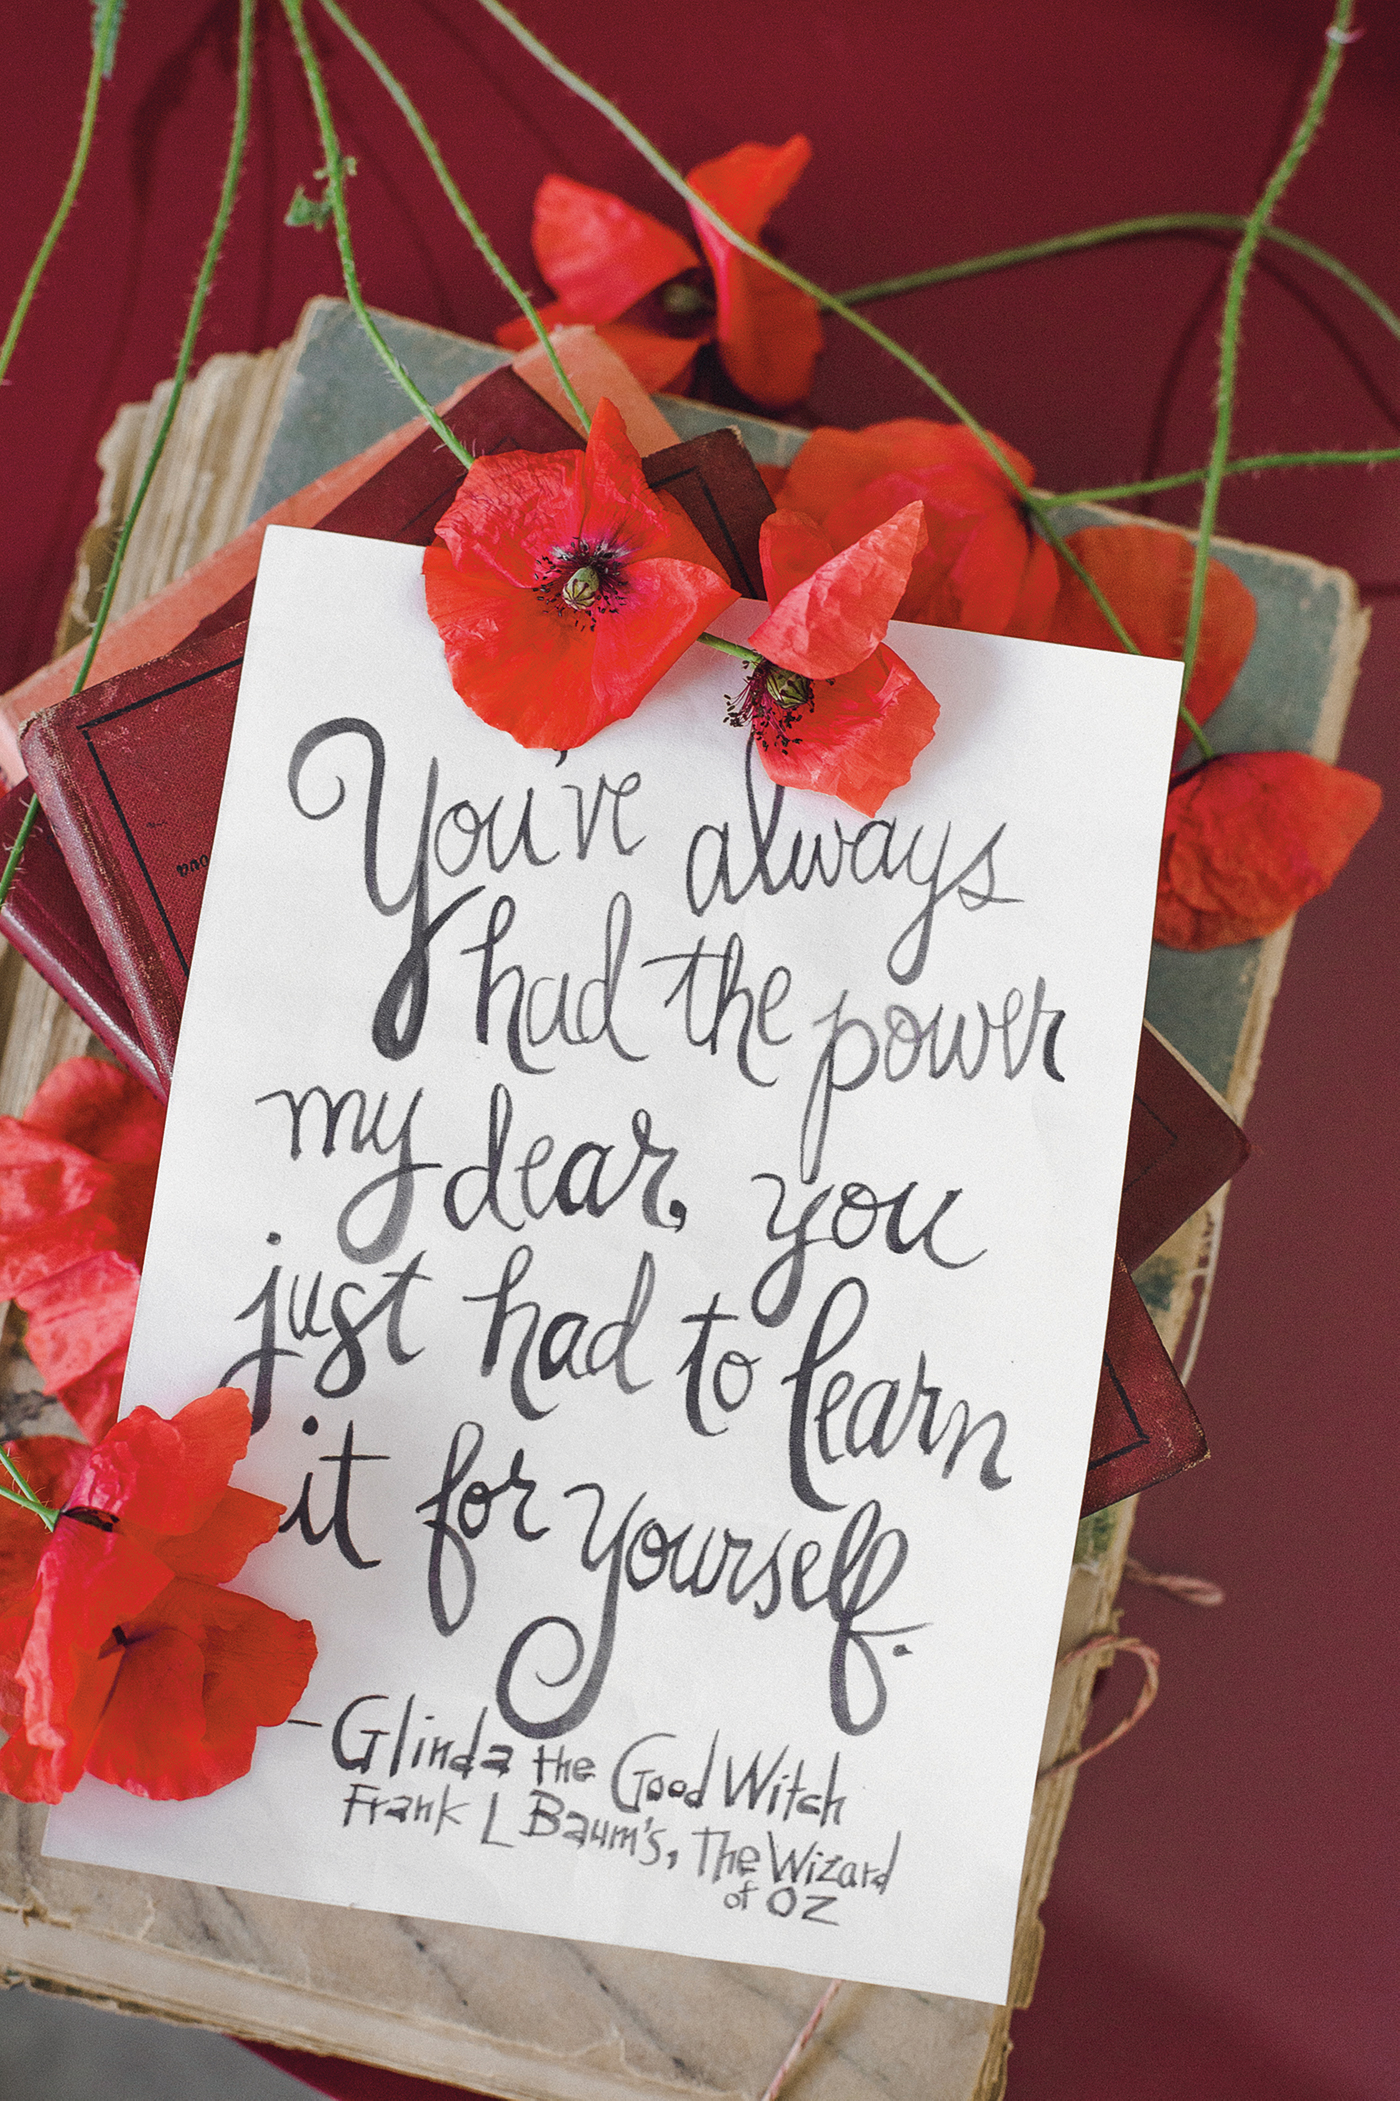 You've always
had the power
my dear, you
just had to learn
it for yourself.
- Glinda the Good Witch
Frank L Baum's, The Wizard
of OZ